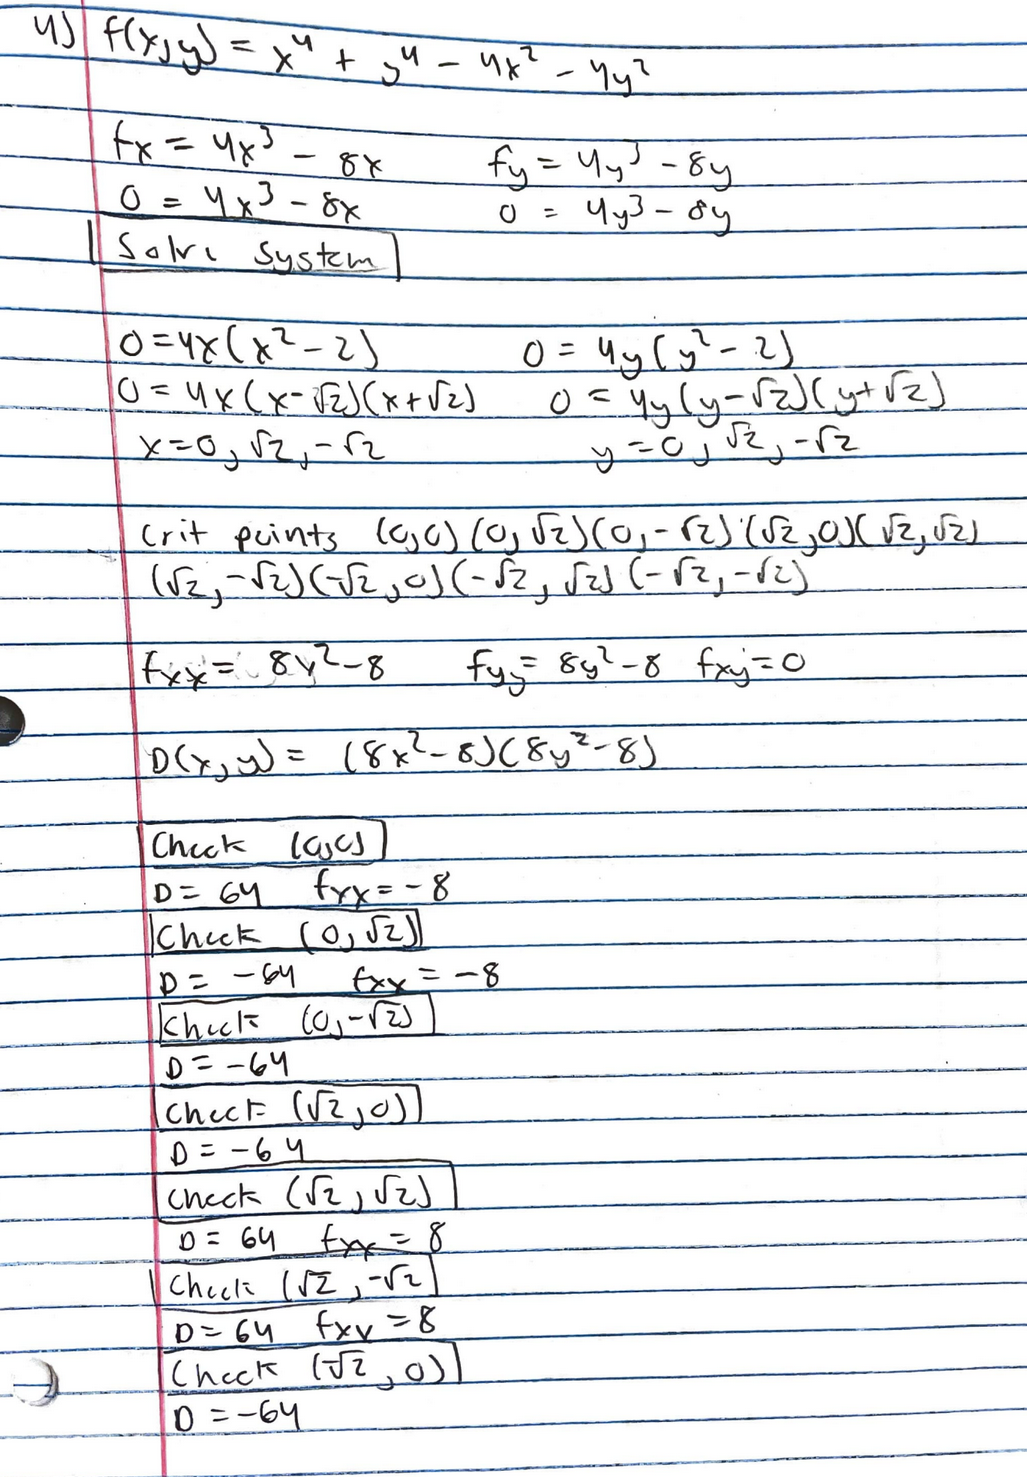 4) f(x,y) = x⁴ + y⁴ - 4x² - 4y²
fx = 4x³ - 8x fy = 4y³ - 8y
0 = 4x³ - 8x 0 = 4y³ - 8y
Solve System
0 = 4x(x² - 2) 0 = 4y(y² - 2)
0 = 4x(x-√2)(x+√2) 0 = 4y(y-√2)(y+√2)
x = 0, √2, -√2 y = 0, √2, -√2
Crit points (0,0) (0,√2) (0,-√2) (√2,0) (√2,√2)
(√2,-√2) (-√2,0) (-√2,√2) (-√2,-√2)
fxx = 8x² - 8 fyy = 8y² - 8 fxy = 0
D(x,y) = (8x² - 8)(8y² - 8)
Check (0,0)
D = 64 fxx = -8
Check (0,√2)
D = -64 fxx = -8
Check (0,-√2)
D = -64
Check (√2,0)
D = -64
Check (√2,√2)
D = 64 fxx = 8
Check (√2,-√2
D = 64 fxx = 8
Check (-√2,0)
D = -64